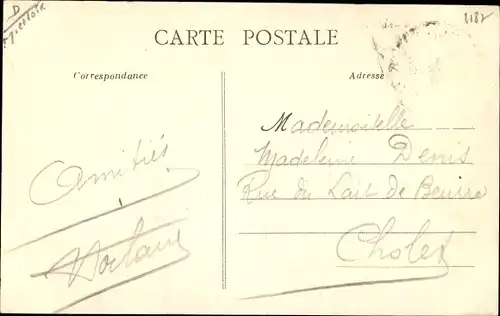 D
8187
CARTE POSTALE
Correspondance
Adresse
Mademoiselle
Madeleine Denis
Rue du Lait de Beurre
Cholet
Amitiés